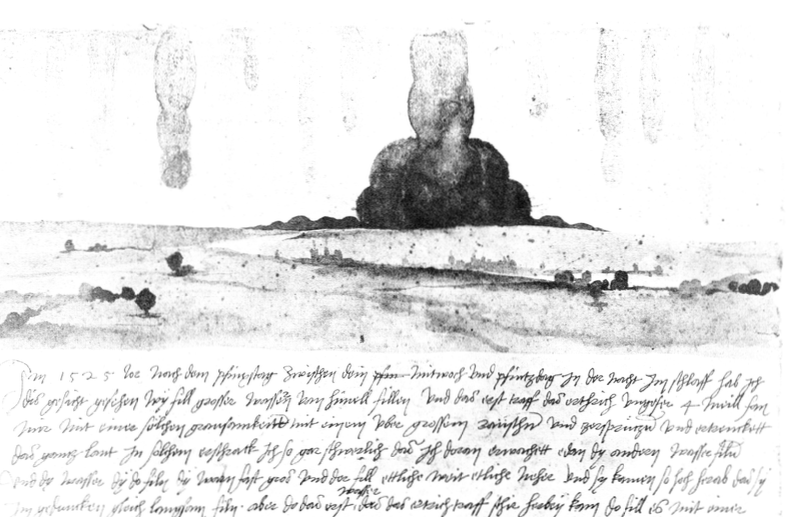 Im 1525 Jor nach dem pfinxstag zwischen dem mitwoch und pfintzdag in der nacht im schlaff hab ich
dis gesicht gesehen wy fill grosser wassern vom himell fillen und das erst traff das erthrich ungefer 4 meill fan
mir mit einer solchen grausamkeitt mit einem uber grossem raüschn und zersprützn und ertrenckett
das gantz lant In solchem erschrack ich so gar schwerlich das ich doran erwachett e dan dy andern wasser filn
und dy wasser dy do filn dy warn fast gros und der fill ettliche weit etliche neher und sy kamen so hoch herab das sy
im gedancken gleich langsam filn aber do das erst wasser das das ertrich traff schir herbey kam do fill es mit einer